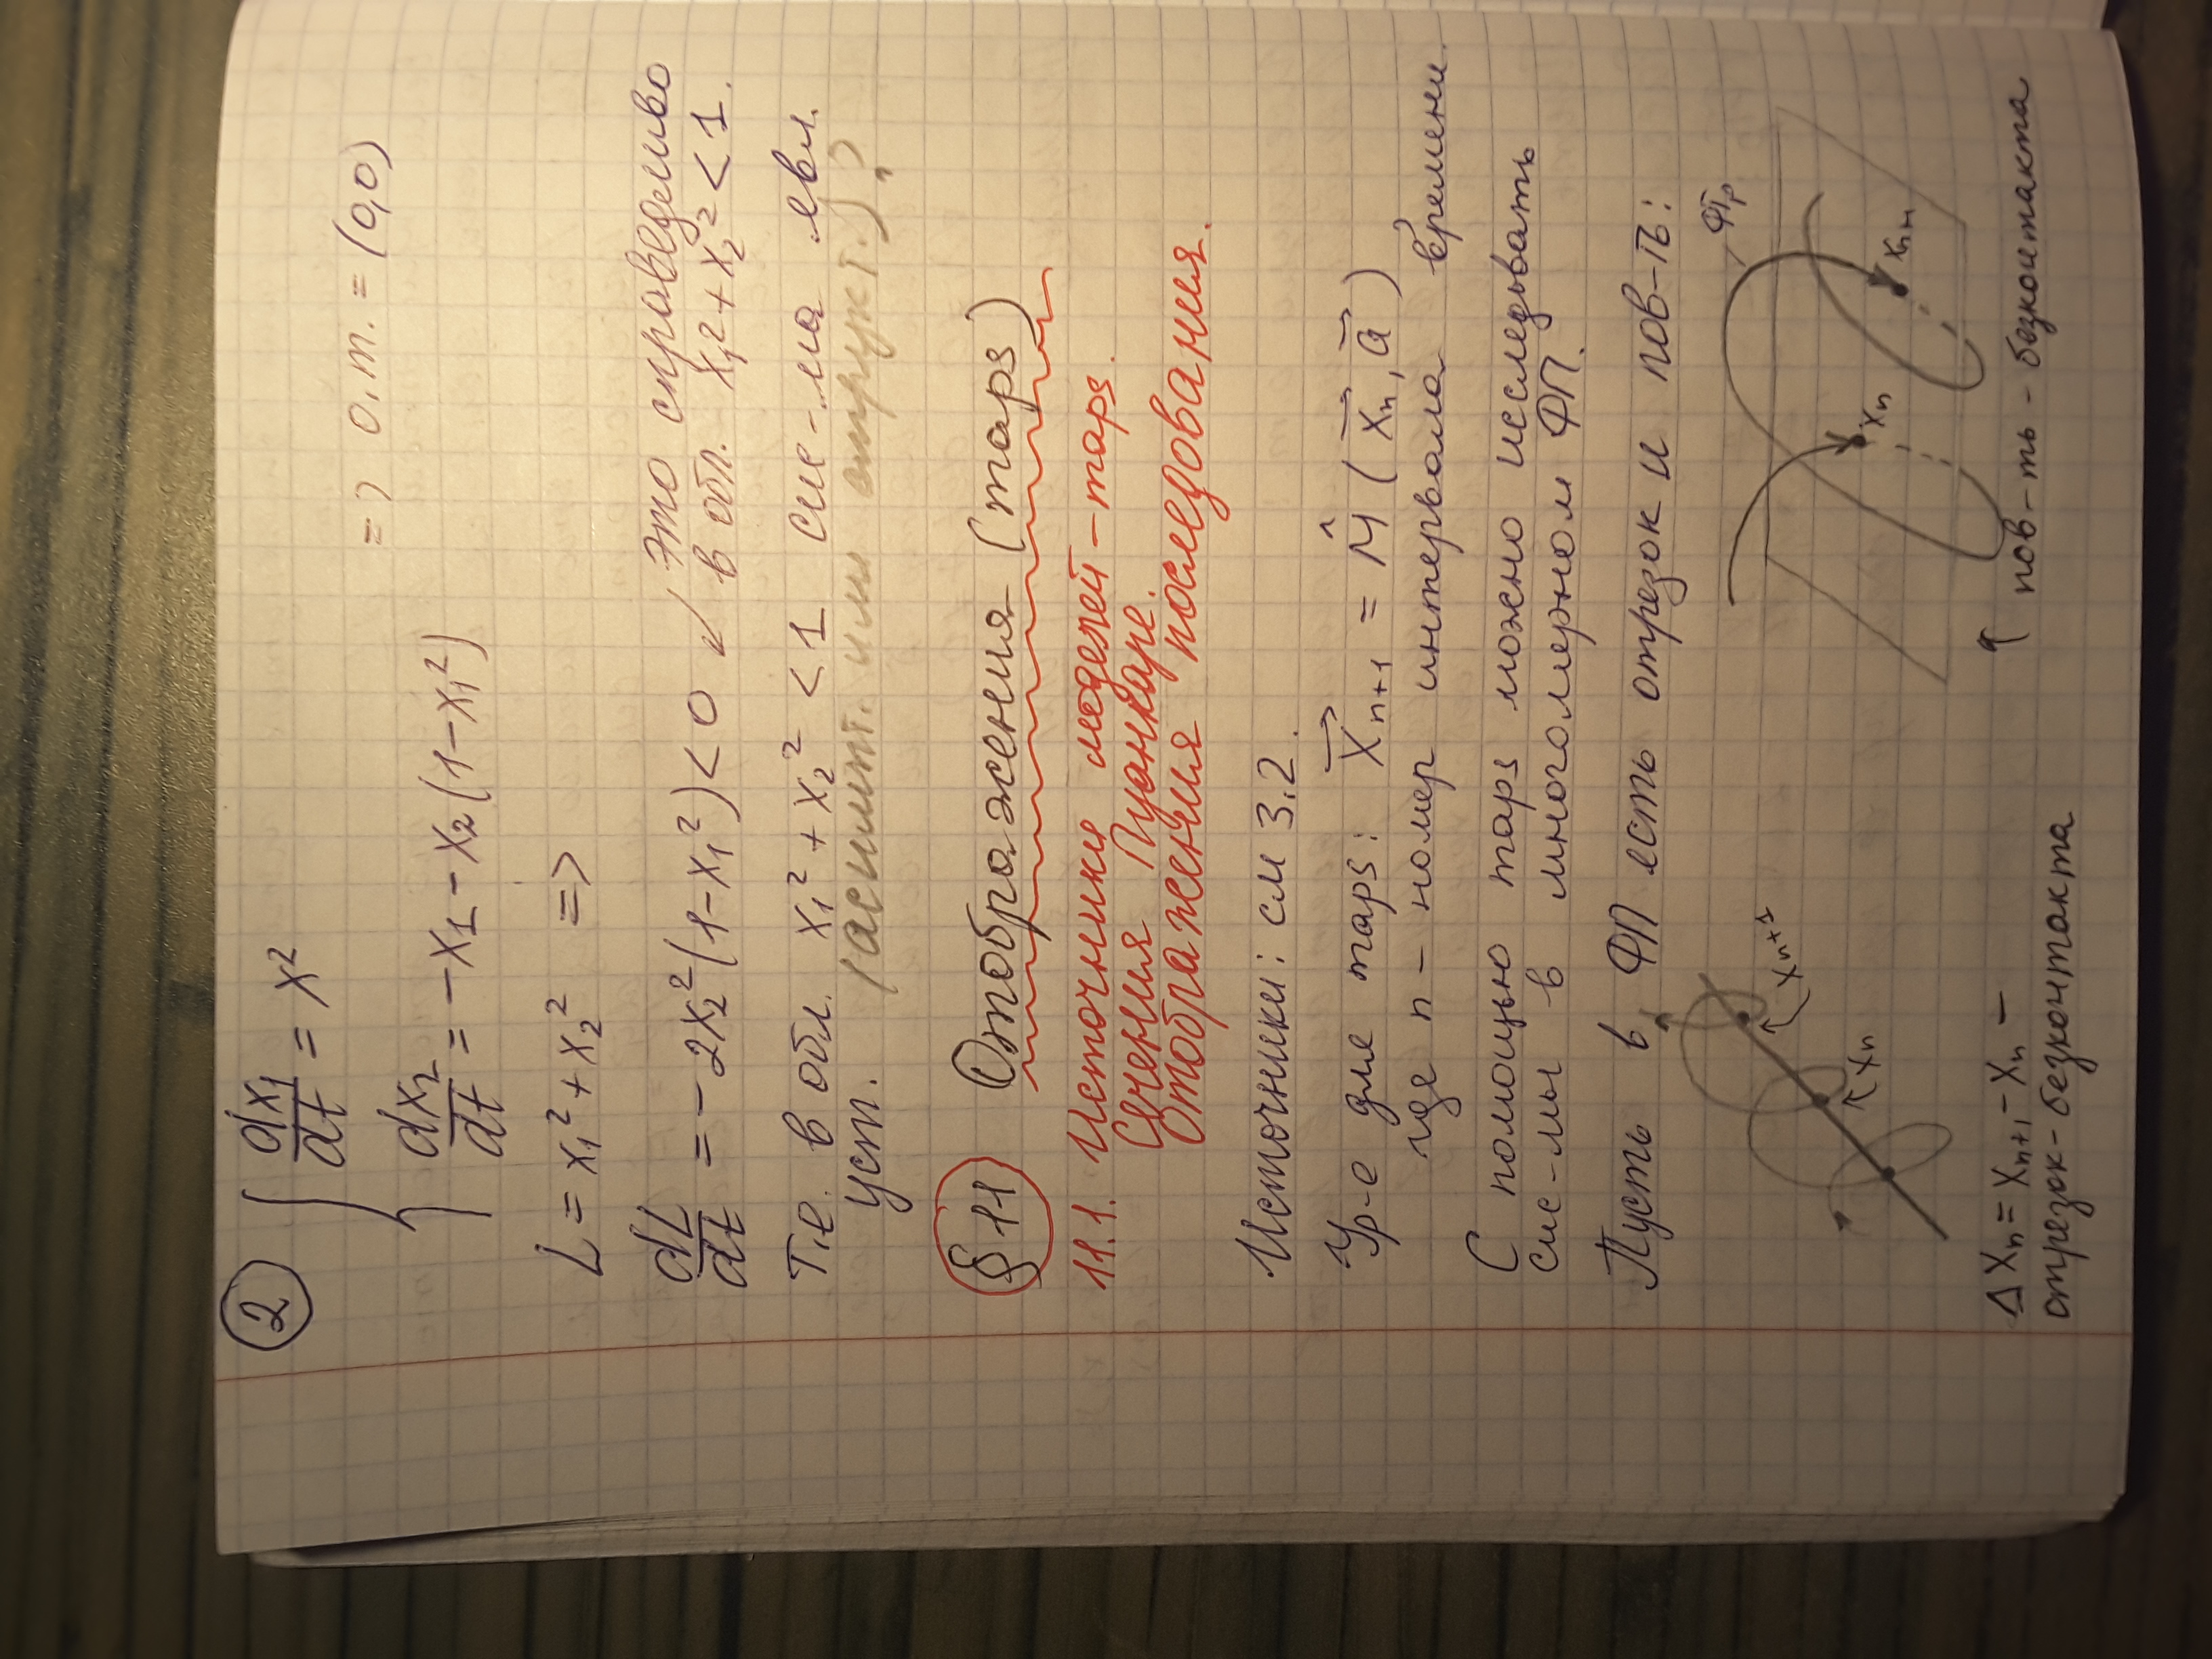 2
dx₁/dt = x²
=> о.т. = (0,0)
dx₂/dt = -x₁ - x₂(1-x₁²)
L = x₁² + x₂² =>
dL/dt = -2x₂²(1-x₁²) < 0 ↙ это справедливо
в обл. x₁² + x₂² < 1.
Т.е. в обл. x₁² + x₂² < 1 сис-ма явл.
уст. (асимпт. или структ.)?
§ 11 Отображения (maps)
11.1. Источники моделей - maps.
Сечения Пуанкаре.
Отображения последования.
Источники: см 3.2.
Ур-е для maps: X⃗ₙ₊₁ = M̂ (x⃗ₙ, a⃗),
где n - номер интервала времени.
С помощью maps можно исследовать
сис-мы в многомерном ФП.
Пусть в ФП есть отрезок и пов-ть:
ФТр
xₙ₊₁
xₙ
xₙ
xₙ₊₁
Δxₙ = xₙ₊₁ - xₙ -
отрезок - безконтакта
↑ пов-ть - безконтакта